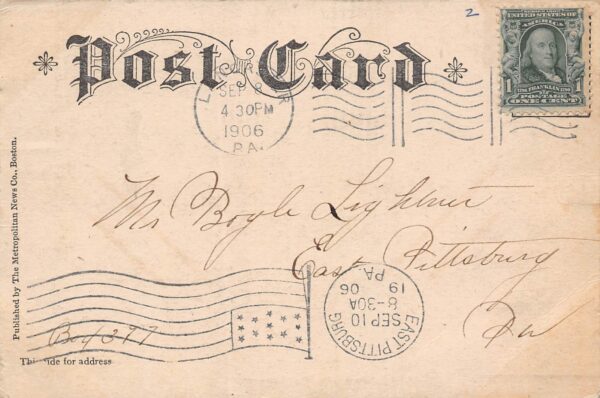 2
Post Card
SEP 8
4 30PM
1906
PA.
UNITED STATES OF
AMERICA
1 FRANKLIN 1
POSTAGE
ONE CENT
Mr Boyle Lightner
East Pittsburg
Pa
Box 377
EAST PITTSBURG
SEP 10
8-30A
19 06
PA.
Published by The Metropolitan News Co., Boston.
side for address